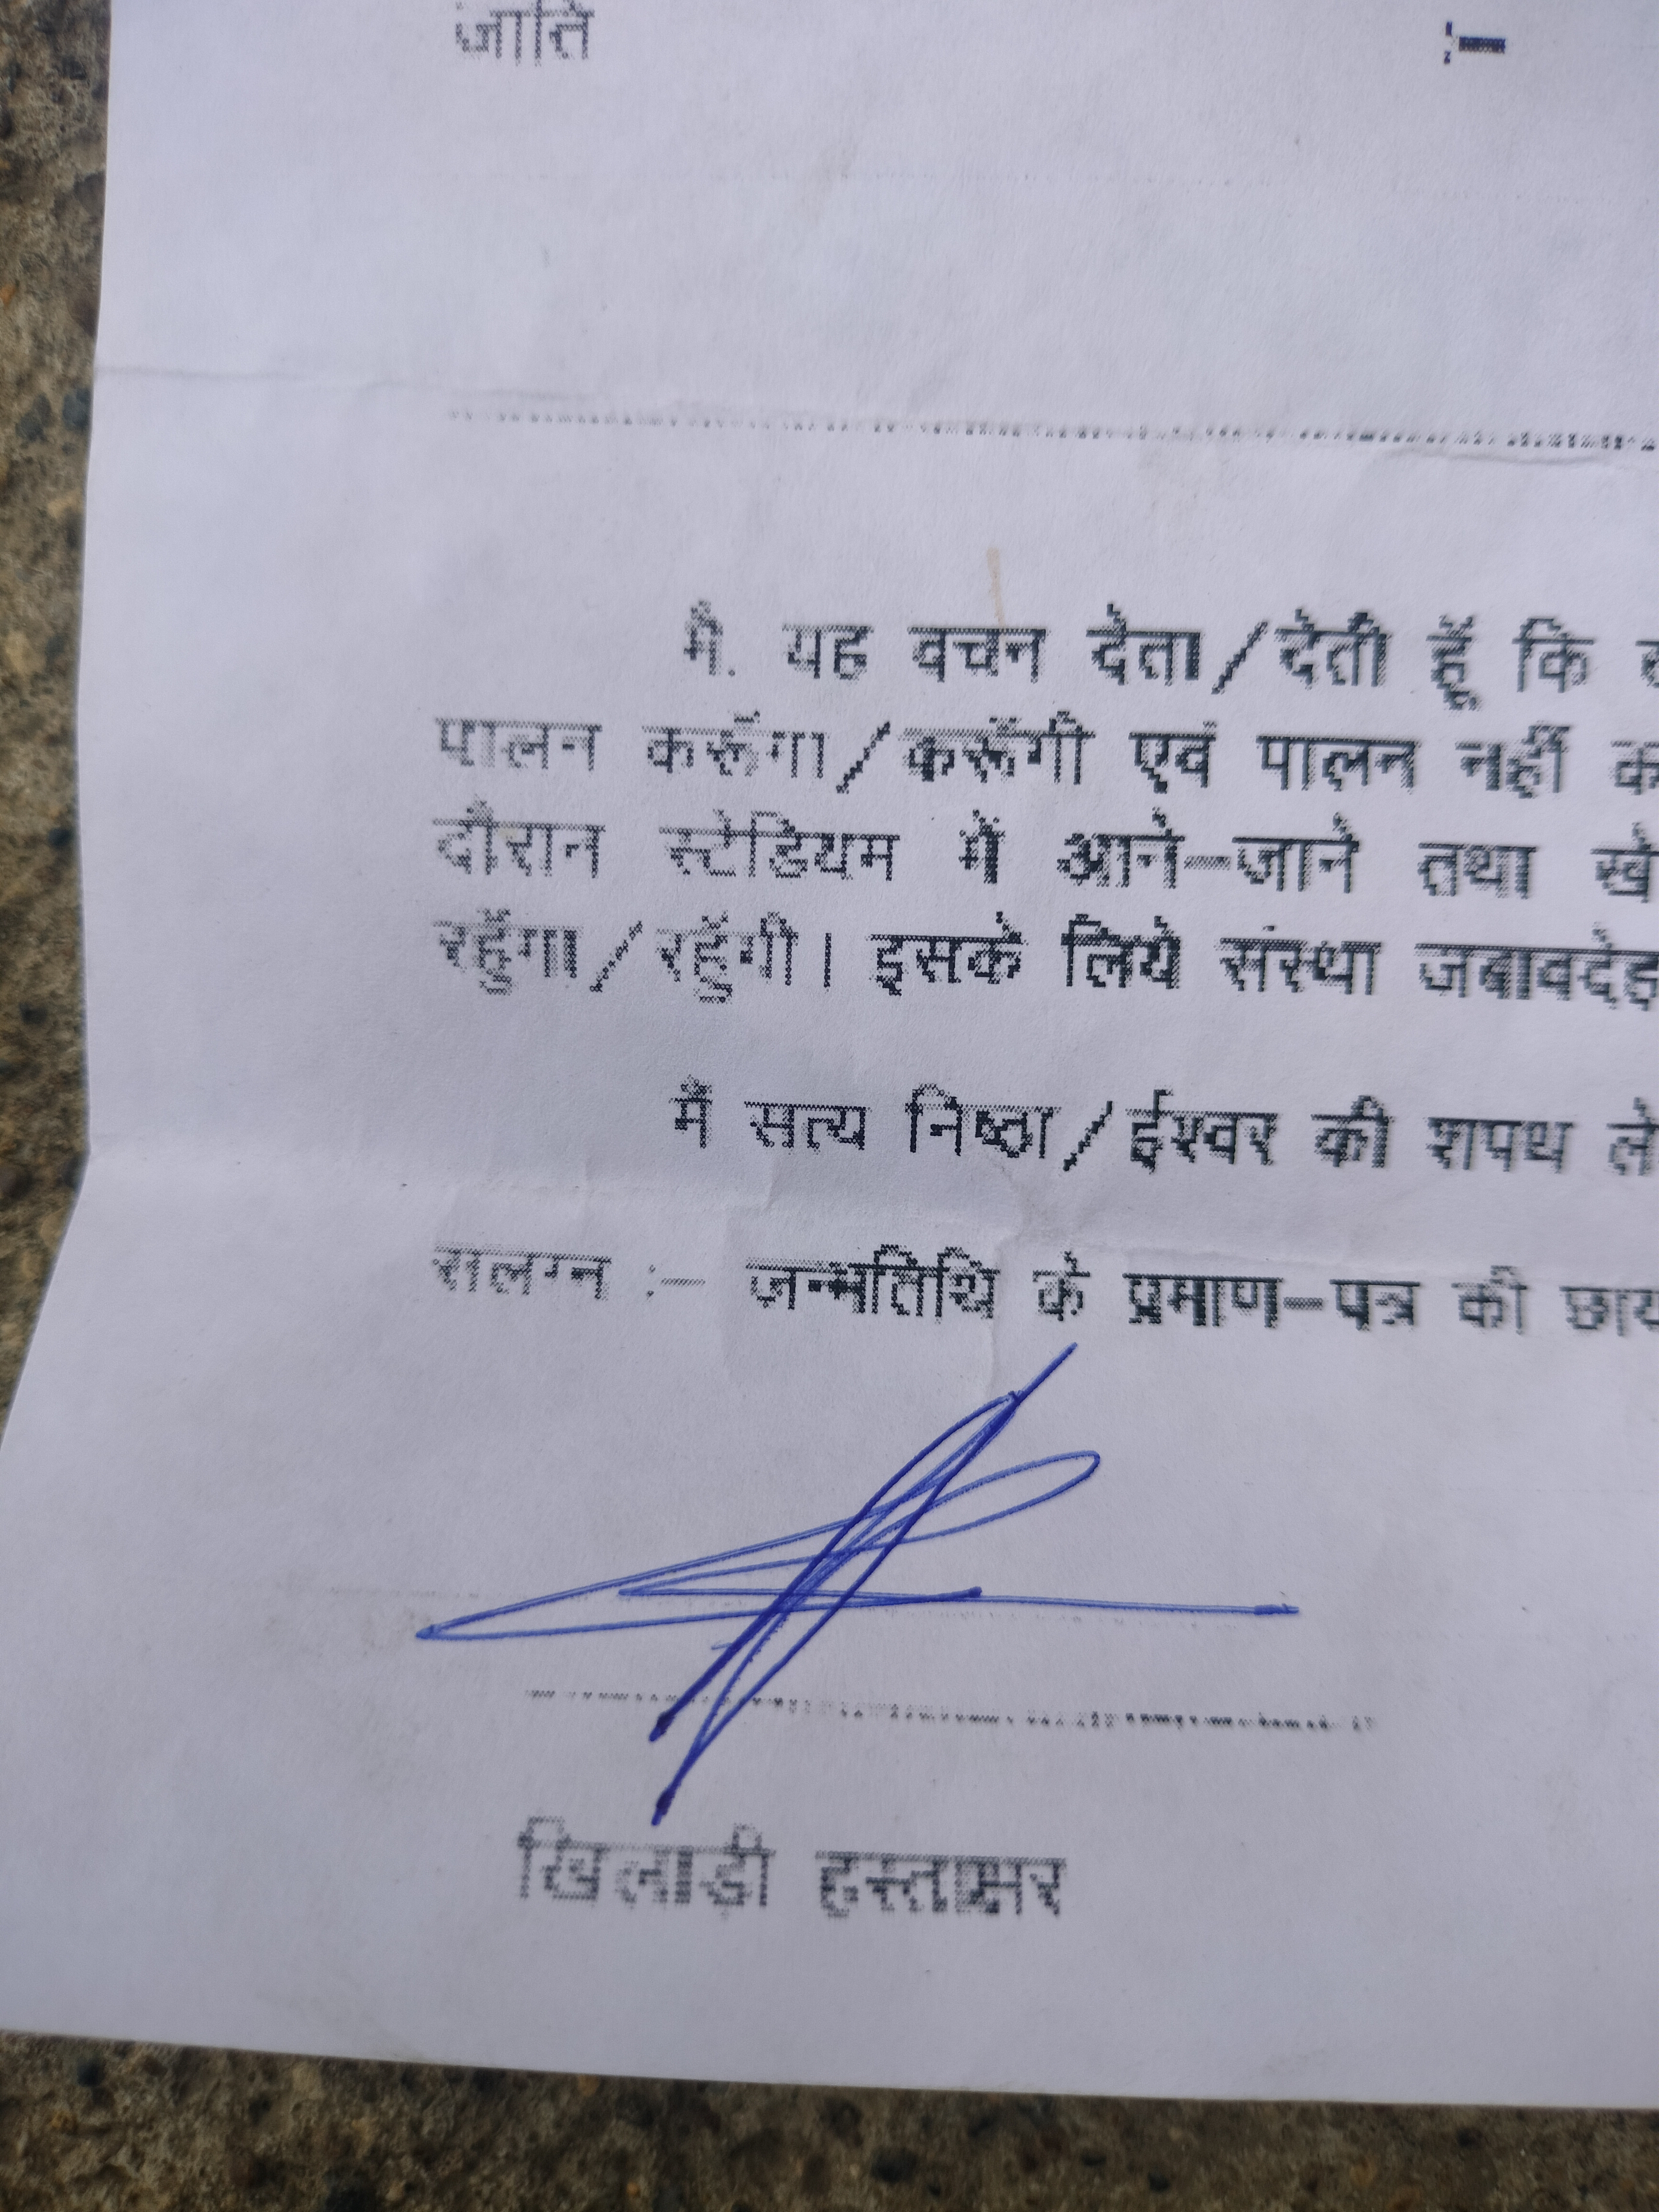 जाति :-
मैं. यह वचन देता/देती हूँ कि
पालन करूँगा/करूँगी एवं पालन नहीं
दौरान स्टेडियम में आने-जाने तथा
रहूँगा/रहूँगी। इसके लिये संस्था जबावदेह
मैं सत्य निष्ठा/ईश्वर की शपथ ले
संलग्न :- जन्मतिथि के प्रमाण-पत्र की छाय
खिलाड़ी हस्ताक्षर